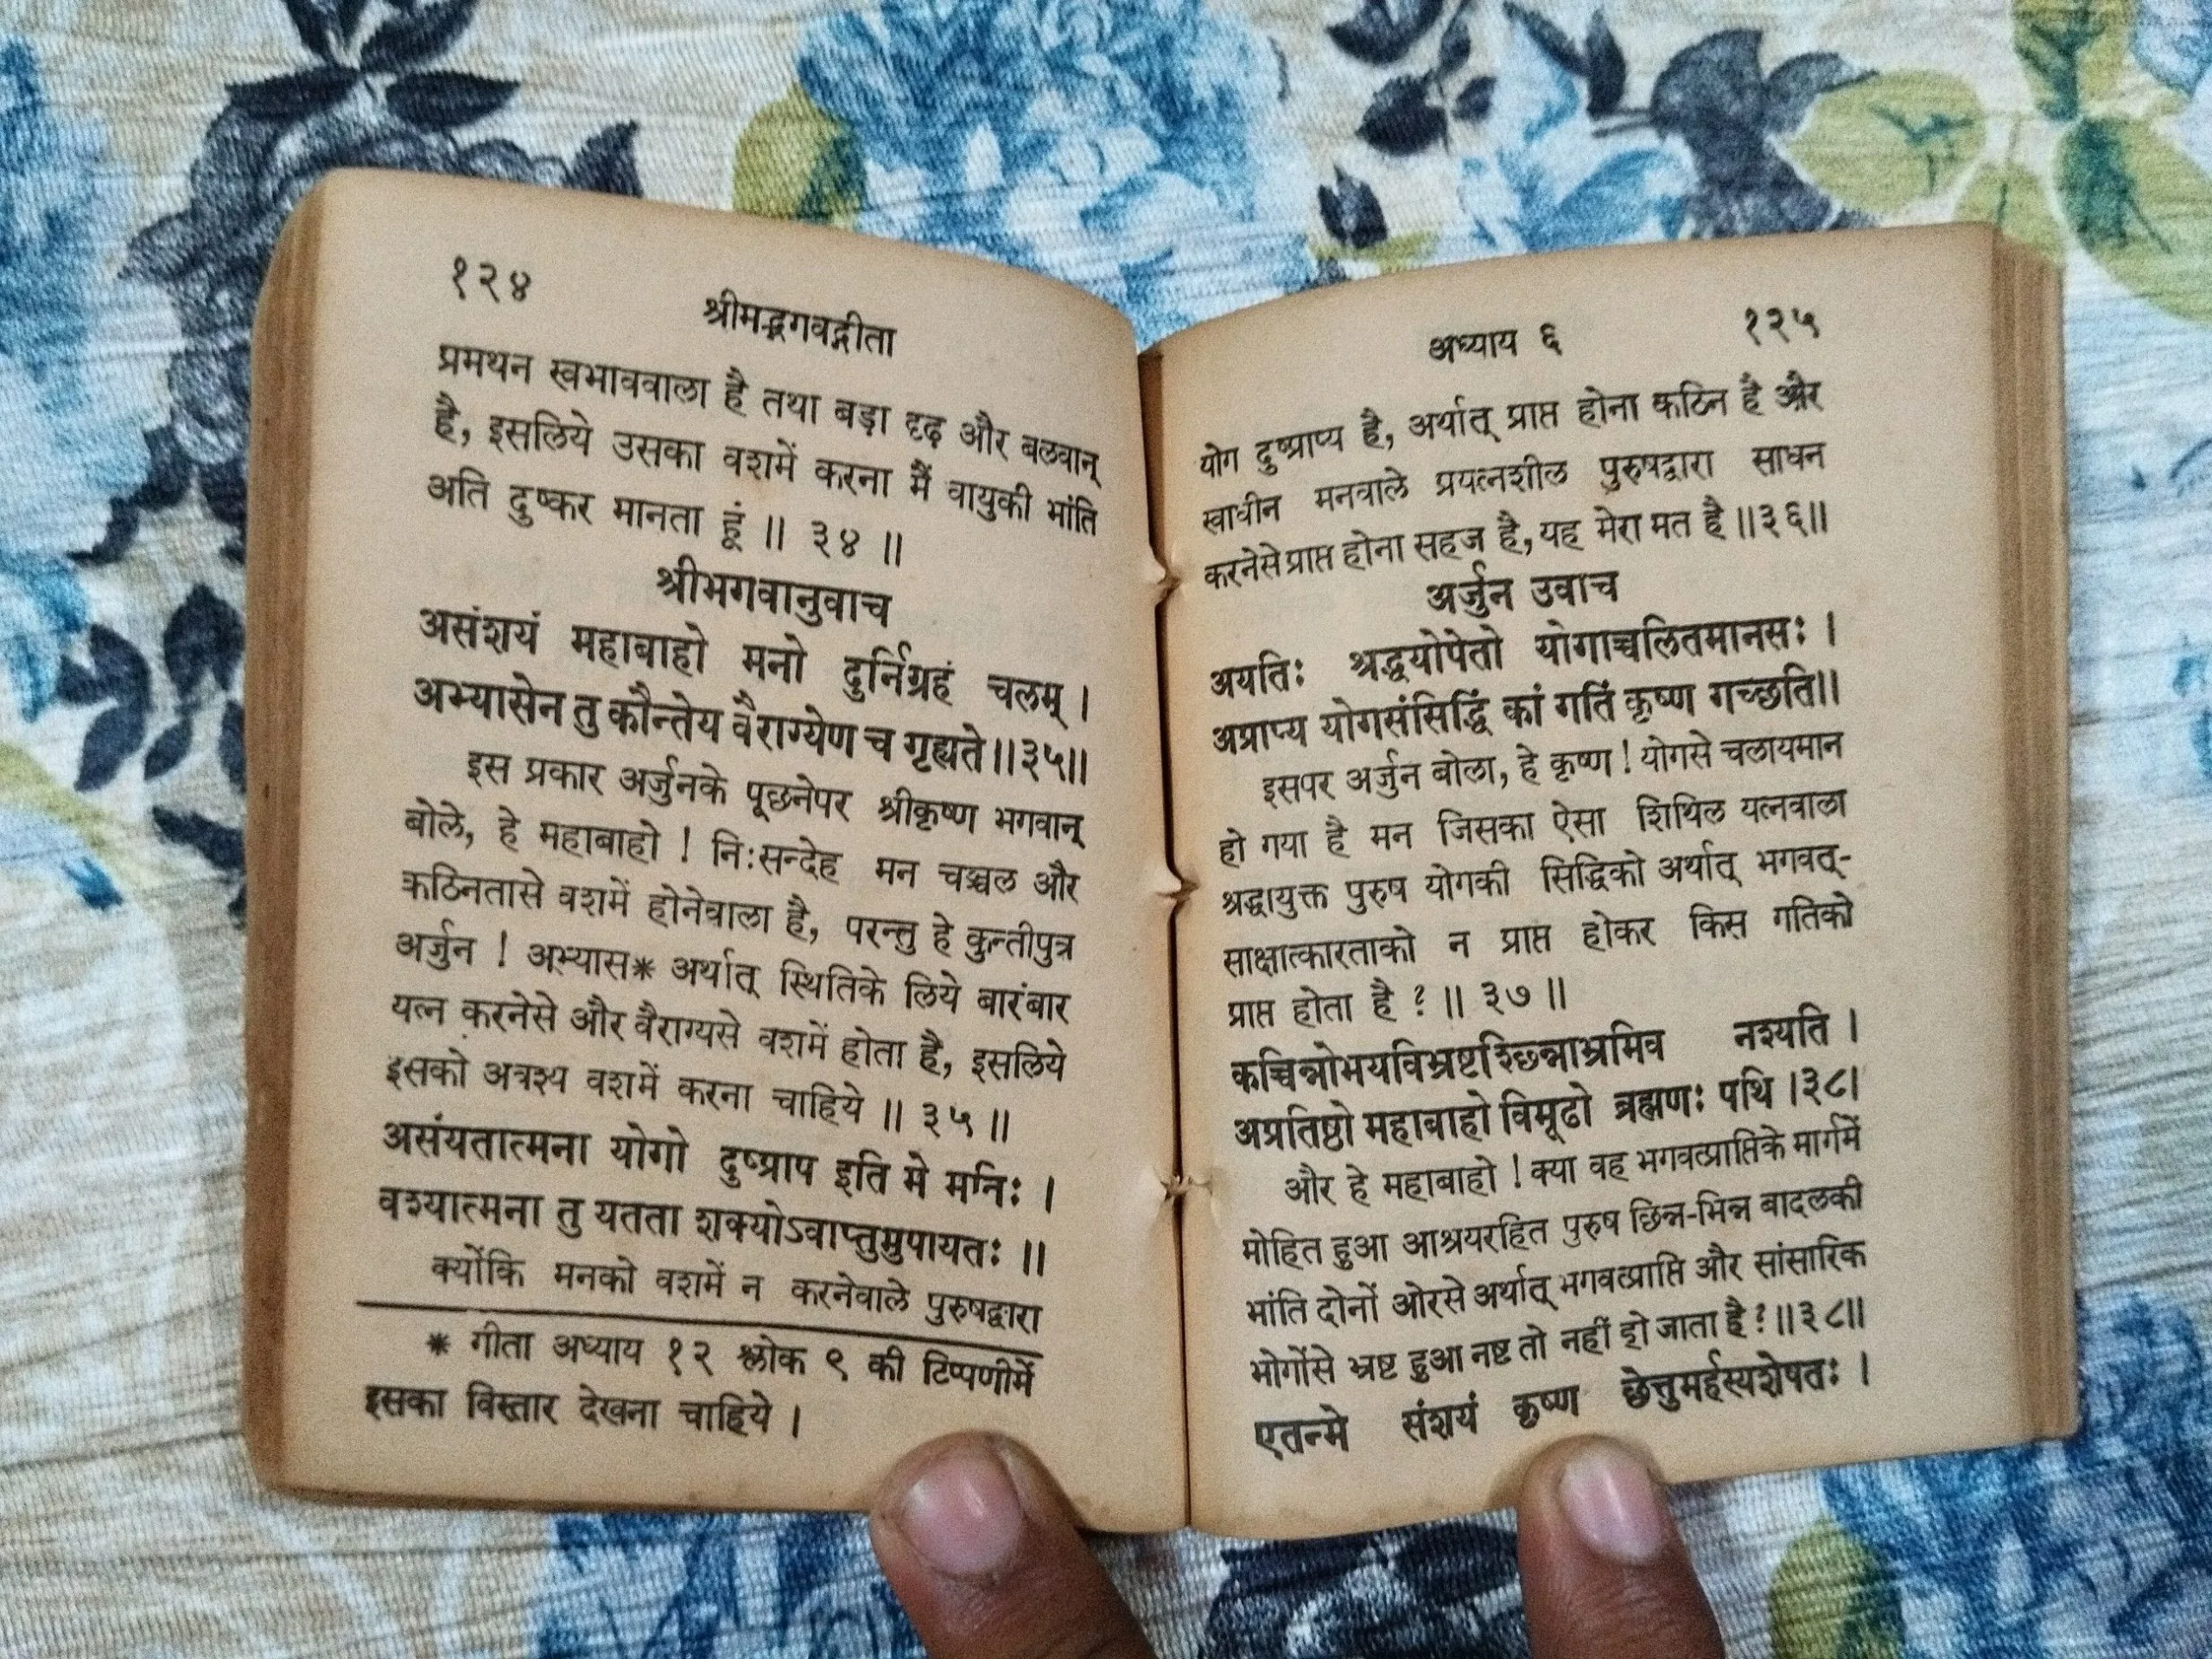 १२४
श्रीमद्भगवद्गीता
प्रमथन स्वभाववाला है तथा बड़ा दृढ़ और बलवान्
है, इसलिये उसका वशमें करना मैं वायुकी भांति
अति दुष्कर मानता हूं ॥ ३४ ॥
श्रीभगवानुवाच
असंशयं महाबाहो मनो दुर्निग्रहं चलम् ।
अभ्यासेन तु कौन्तेय वैराग्येण च गृह्यते॥३५॥
इस प्रकार अर्जुनके पूछनेपर श्रीकृष्ण भगवान्
बोले, हे महाबाहो ! निःसन्देह मन चञ्चल और
कठिनतासे वशमें होनेवाला है, परन्तु हे कुन्तीपुत्र
अर्जुन ! अभ्यास* अर्थात् स्थितिके लिये बारंबार
यत्न करनेसे और वैराग्यसे वशमें होता है, इसलिये
इसको अवश्य वशमें करना चाहिये ॥ ३५ ॥
असंयतात्मना योगो दुष्प्राप इति मे मतिः ।
वश्यात्मना तु यतता शक्योऽवाप्तुमुपायतः ॥
क्योंकि मनको वशमें न करनेवाले पुरुषद्वारा
* गीता अध्याय १२ श्लोक ९ की टिप्पणीमें
इसका विस्तार देखना चाहिये ।
अध्याय ६
१२५
योग दुष्प्राप्य है, अर्थात् प्राप्त होना कठिन है और
स्वाधीन मनवाले प्रयत्नशील पुरुषद्वारा साधन
करनेसे प्राप्त होना सहज है, यह मेरा मत है॥३६॥
अर्जुन उवाच
अयतिः श्रद्धयोपेतो योगाच्चलितमानसः ।
अप्राप्य योगसंसिद्धिं कां गतिं कृष्ण गच्छति॥
इसपर अर्जुन बोला, हे कृष्ण ! योगसे चलायमान
हो गया है मन जिसका ऐसा शिथिल यत्नवाला
श्रद्धायुक्त पुरुष योगकी सिद्धिको अर्थात् भगवत्-
साक्षात्कारताको न प्राप्त होकर किस गतिको
प्राप्त होता है ? ॥ ३७ ॥
कच्चिन्नोभयविभ्रष्टश्छिन्नाभ्रमिव नश्यति ।
अप्रतिष्ठो महाबाहो विमूढो ब्रह्मणः पथि ।३८।
और हे महाबाहो ! क्या वह भगवत्प्राप्तिके मार्गमें
मोहित हुआ आश्रयरहित पुरुष छिन्न-भिन्न बादलकी
भांति दोनों ओरसे अर्थात् भगवत्प्राप्ति और सांसारिक
भोगोंसे भ्रष्ट हुआ नष्ट तो नहीं हो जाता है ?॥३८॥
एतन्मे संशयं कृष्ण छेत्तुमर्हस्यशेषतः ।